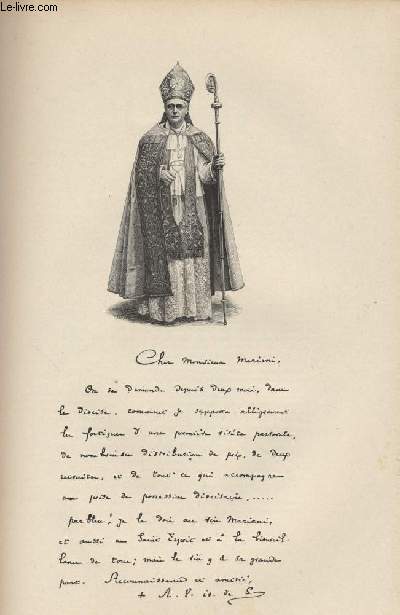 Le-livre.com
Cher Monsieur Mariani,
On se demande depuis deux mois, dans
le diocèse, comment je supporte allègrement
les fatigues d'une première visite pastorale,
de nombreuses distributions de prix, de deux
retraites, et de tout ce qui accompagne
une prise de possession diocésaine.....
parbleu! je le dois au vin Mariani,
et aussi au Saint Esprit et à la bienveil-
lance de tous; mais le vin y a sa grande
part. Reconnaissance et amitié,
+ A. l. év. de